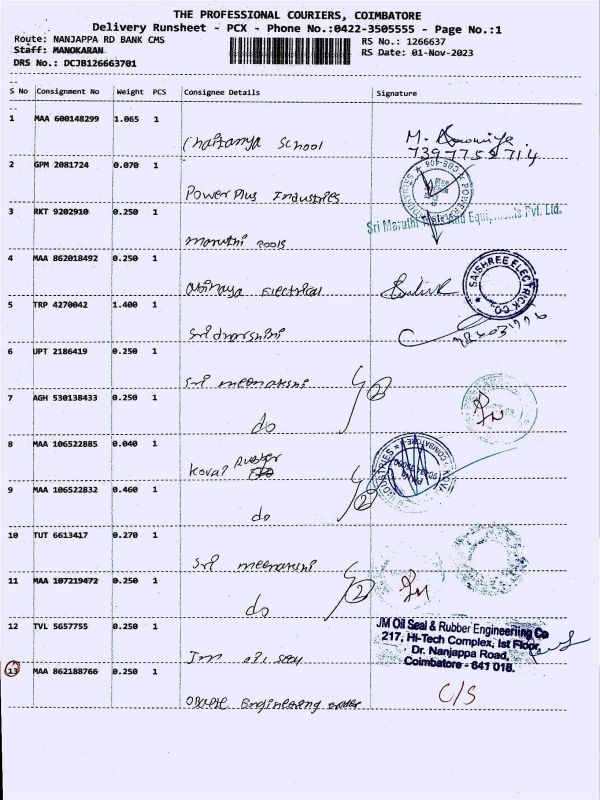 THE PROFESSIONAL COURIERS, COIMBATORE
Delivery Runsheet - PCX - Phone No.:0422-3505555 - Page No.:1
Route: NANJAPPA RD BANK CMS RS No.: 1266637
Staff: MANOKARAN RS Date: 01-Nov-2023
DRS No.: DCJB126663701
S No Consignment No Weight PCS Consignee Details Signature
1 MAA 600148299 1.065 1 Chaitanya School M.
7397755714
2 GPM 2081724 0.070 1 Power Plus Industries
Sri Maruthi Pvt. Ltd.
3 RKT 9202910 0.250 1 maruthi Tools
4 MAA 862018492 0.250 1 Abinaya Electrical SAISHREE ELECTRICK CO.
5 TRP 4270042 1.400 1 Sri dharshini
6 UPT 2186419 0.250 1 Sri meenakshi 2
7 AGH 530138433 0.250 1 do
8 MAA 106522885 0.040 1 Kovai Rubber 2
9 MAA 106522832 0.460 1 do
10 TUT 6613417 0.270 1 Sri meenakshi 2
11 MAA 107219472 0.250 1 do
12 TVL 5657755 0.250 1 Jm oil seal
JM Oil Seal & Rubber Engineeriing Co
217, Hi-Tech Complex, Ist Floor,
Dr. Nanjappa Road,
Coimbatore - 641 018.
13 MAA 862188766 0.250 1 Engineering C/S